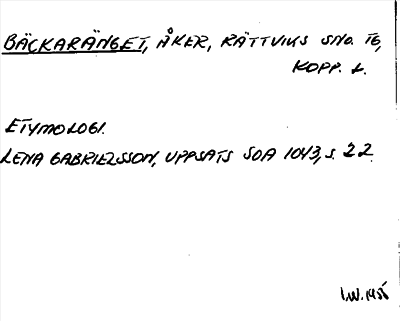 BÄCKARÄNGET, ÅKER, RÄTTVIKS SNO. TG,
KOPP. L.
ETYMOLOGI.
LENA GABRIELSSON, UPPSATS SOA 1043, S. 22.
I.W. 1985